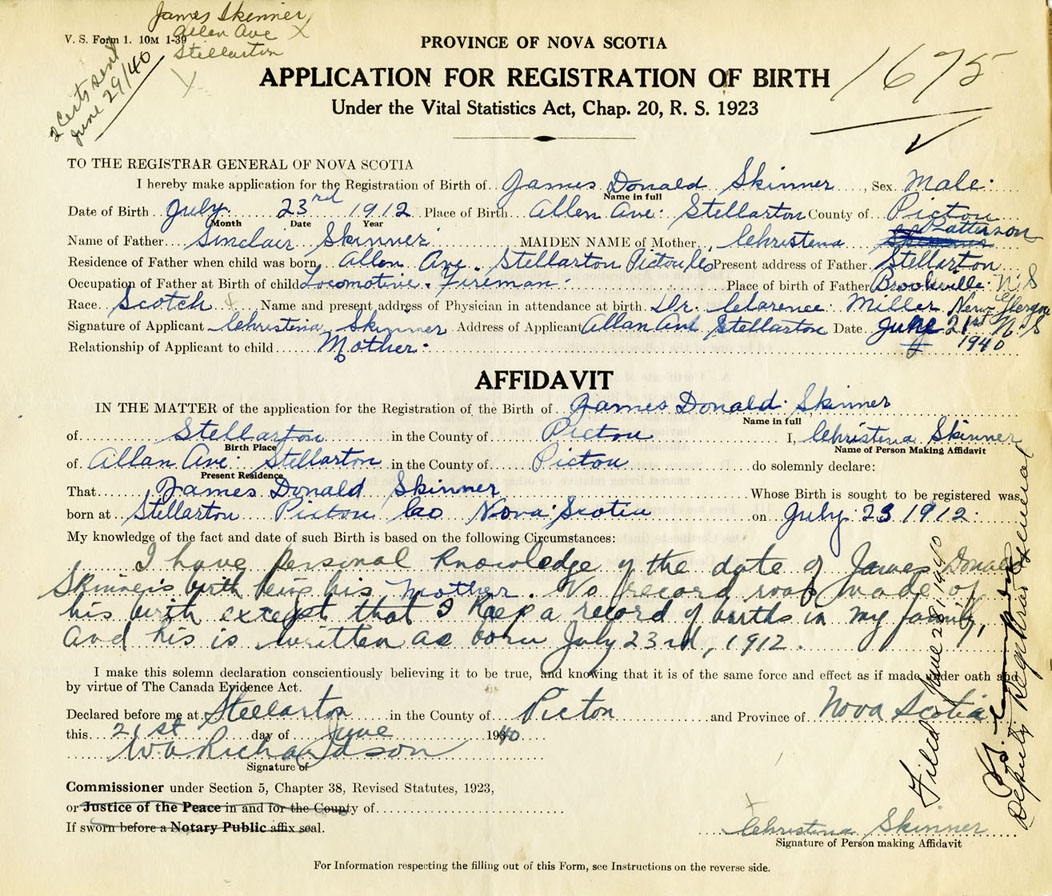 James Skinner
Allen Ave X
Stellarton
V. S. Form 1. 10M 1-39
2 Certs sent
June 29/40
PROVINCE OF NOVA SCOTIA
APPLICATION FOR REGISTRATION OF BIRTH
1675
Under the Vital Statistics Act, Chap. 20, R. S. 1923
TO THE REGISTRAR GENERAL OF NOVA SCOTIA
I hereby make application for the Registration of Birth of James Donald Skinner, Sex Male.
Name in full
Date of Birth July 23rd 1912 Place of Birth Allen Ave. Stellarton County of Pictou
Month Date Year
Name of Father Sinclair Skinner MAIDEN NAME of Mother Christena Patterson
Residence of Father when child was born Allen Ave. Stellarton Pictou Co Present address of Father Stellarton
Occupation of Father at Birth of child Locomotive Fireman. Place of birth of Father Brookville. N. S
Race Scotch Name and present address of Physician in attendance at birth Dr. Clarence Miller New Glasgow
Signature of Applicant Christina Skinner Address of Applicant Allan Ave Stellarton Date June 21st N. S
1940
Relationship of Applicant to child Mother.
AFFIDAVIT
IN THE MATTER of the application for the Registration of the Birth of James Donald Skinner
Name in full
of Stellarton in the County of Pictou I, Christina Skinner
Birth Place Name of Person Making Affidavit
of Allan Ave. Stellarton in the County of Pictou do solemnly declare:
Present Residence
That James Donald Skinner Whose Birth is sought to be registered was
born at Stellarton Pictou Co Nova Scotia on July 23 1912.
My knowledge of the fact and date of such Birth is based on the following Circumstances:
I have personal knowledge of the date of James Donald
Skinner's birth being his Mother. No record was made of
his birth except that I keep a record of births in my family,
and his is written as born July 23rd, 1912.
I make this solemn declaration conscientiously believing it to be true, and knowing that it is of the same force and effect as if made under oath and
by virtue of The Canada Evidence Act.
Declared before me at Stellarton in the County of Picton and Province of Nova Scotia
this 21st day of June 1940
W. A. Richardson
Signature of
Commissioner under Section 5, Chapter 38, Revised Statutes, 1923,
or Justice of the Peace in and for the County of
If sworn before a Notary Public affix seal.
X
Christina Skinner
Signature of Person making Affidavit
Filed June 28 1940
Deputy Registrar General
For Information respecting the filling out of this Form, see Instructions on the reverse side.